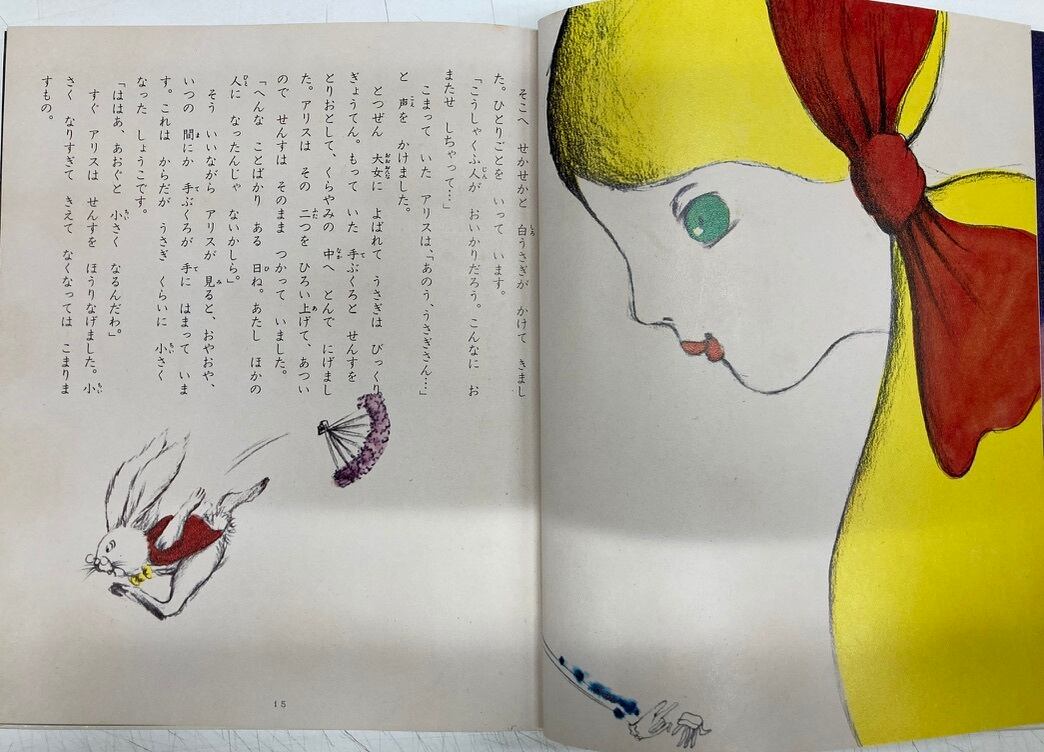 そこへ せかせかと 白うさぎが かけて きまし
た。ひとりごとを いって います。
「こうしゃくふ人が おいかりだろう。こんなに お
またせ しちゃって…」
こまって いた アリスは、「あのう、うさぎさん…」
と 声を かけました。
とつぜん 大女に よばれて うさぎは びっくり
ぎょうてん。もって いた 手ぶくろと せんすを
とりおとして、くらやみの 中へ とんで にげまし
た。アリスは その 二つを ひろい上げて、あつい
ので せんすは そのまま つかって いました。
「へんな ことばかり ある 日ね。あたし ほかの
人に なったんじゃ ないかしら。」
そう いいながら アリスが 見ると、おやおや、
いつの 間にか 手ぶくろが 手に はまって いま
す。これは からだが うさぎ くらいに 小さく
なった しょうこです。
「ははあ、あおぐと 小さく なるんだわ。」
すぐ アリスは せんすを ほうりなげました。小
さく なりすぎて きえて なくなっては こまりま
すもの。
15